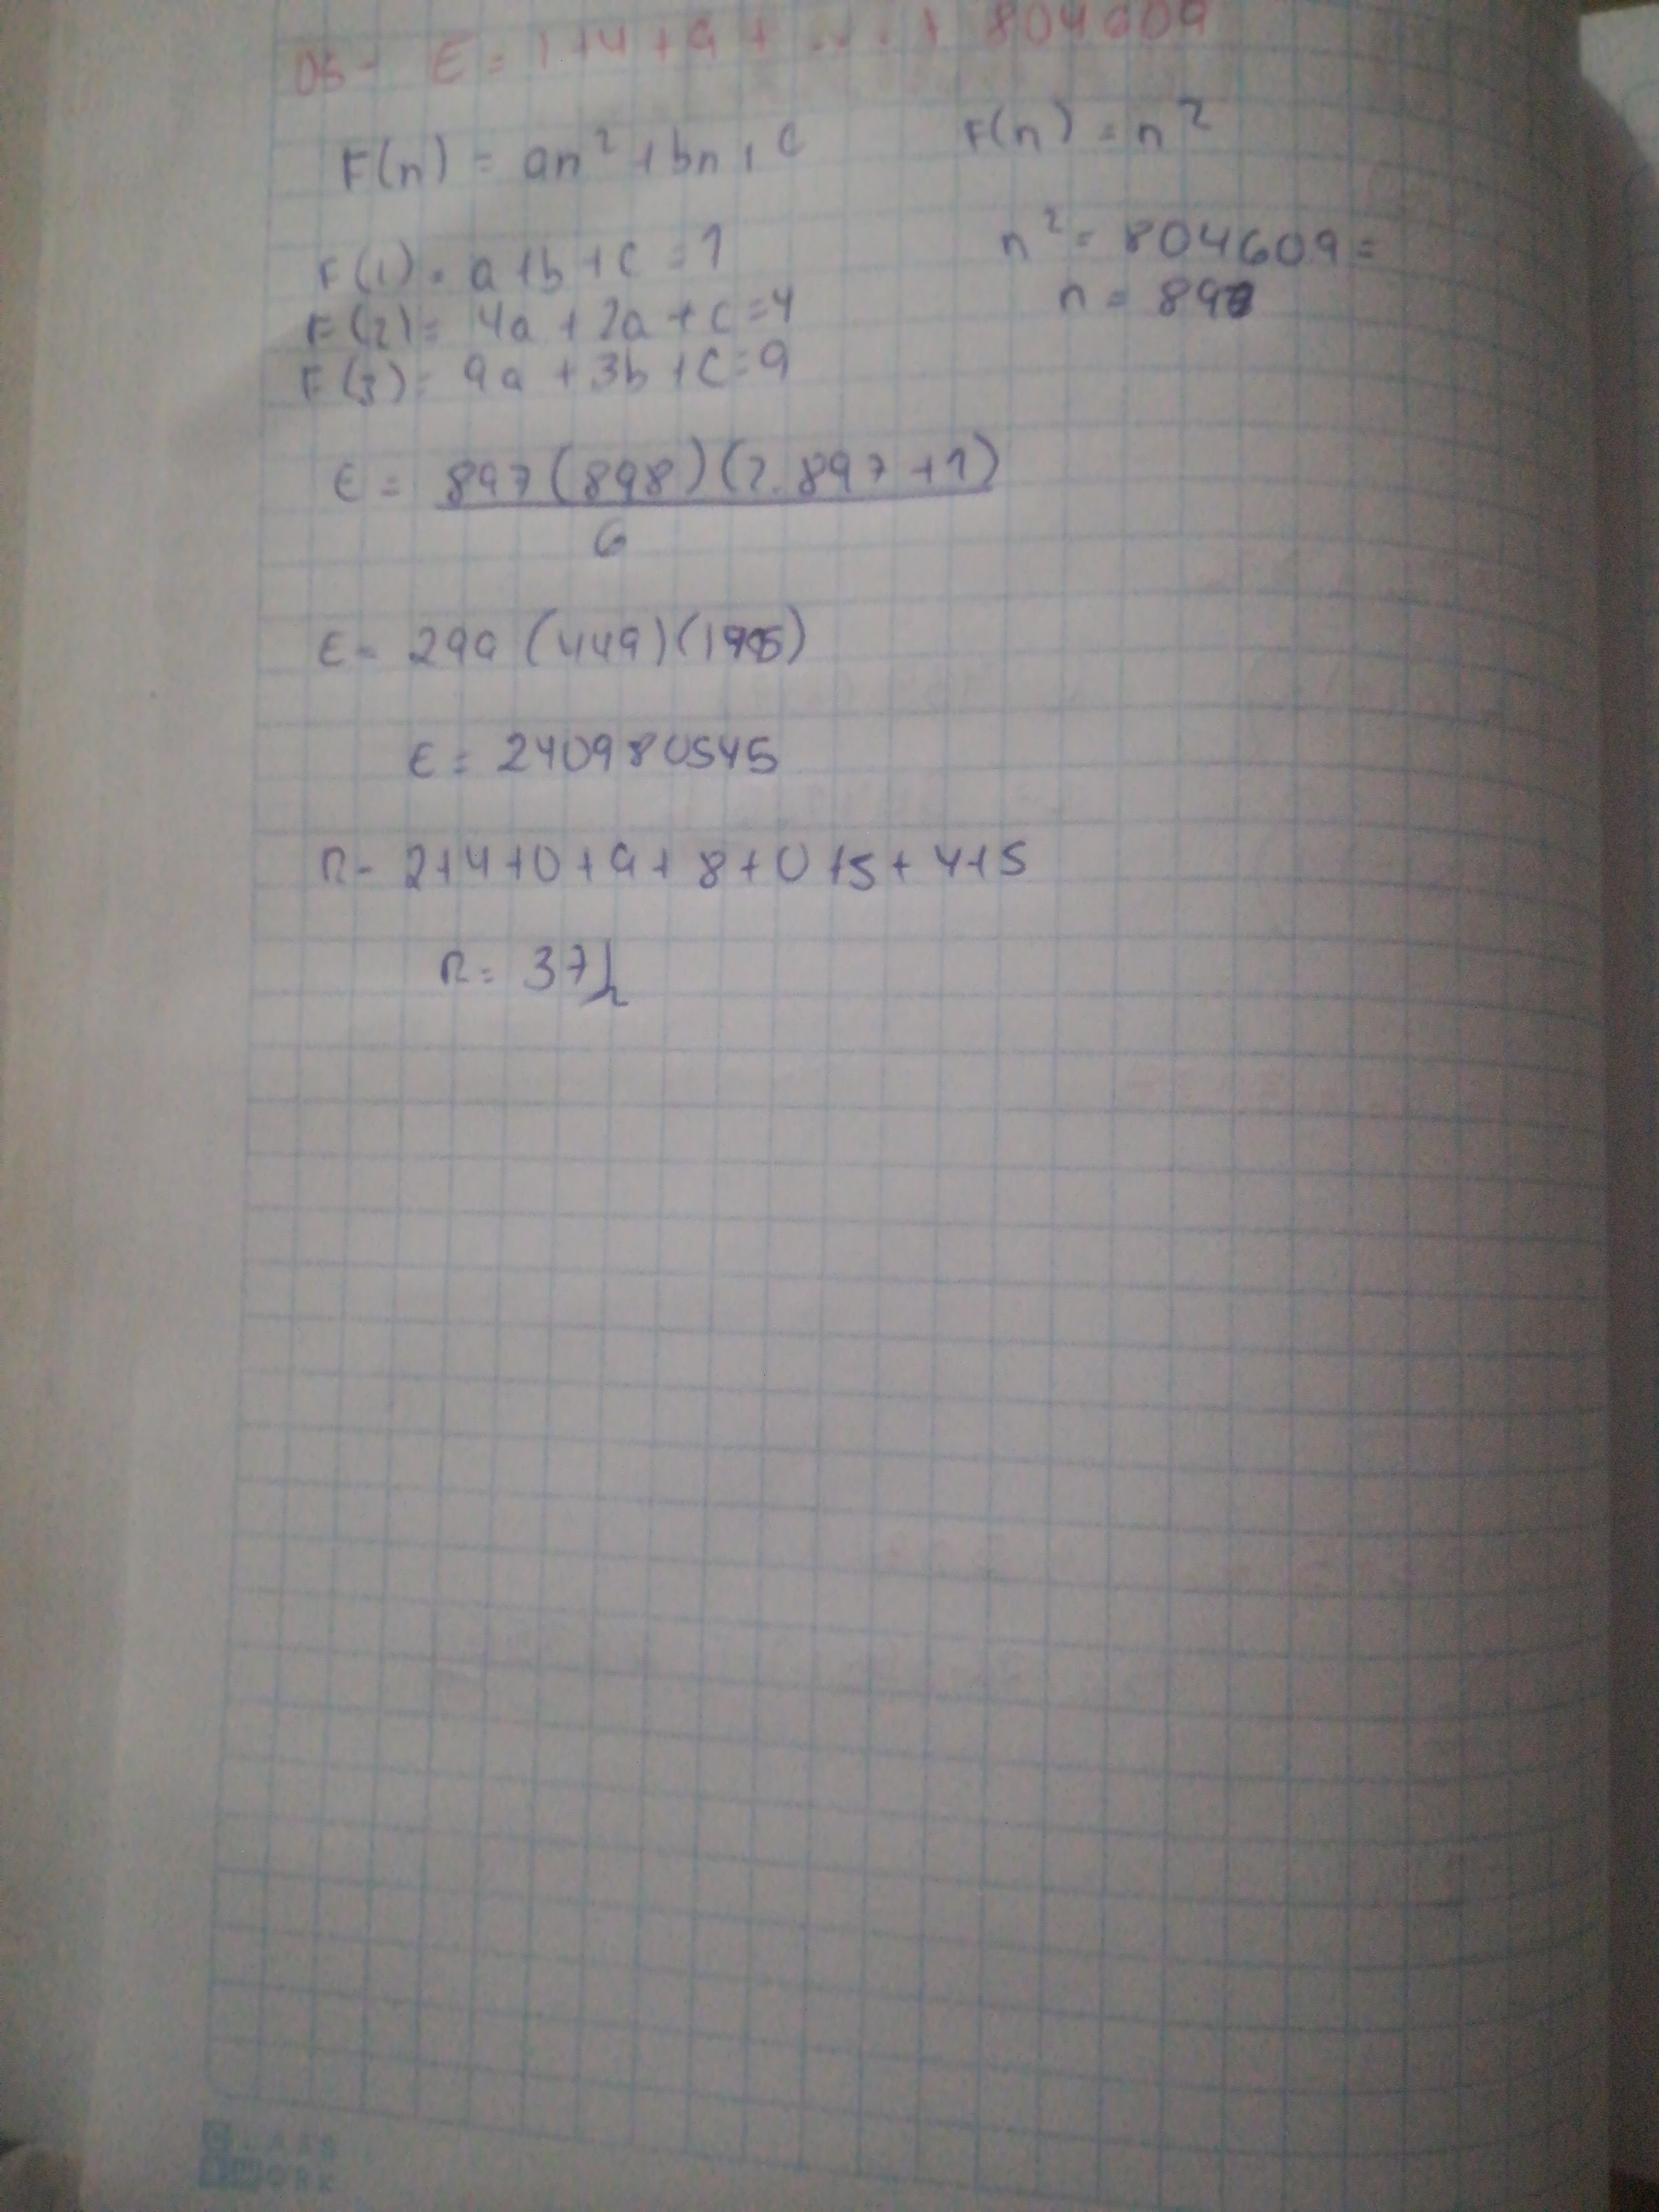 05- E = 1+4+9+....+ 804609
F(n) = an² + bn + c
F(n) = n²
F(1) = a+b+c = 1
n² = 804609 =
F(2) = 4a + 2a + c = 4
n = 897
F(3) = 9a + 3b + c = 9
E = 897(898)(2.897+1)
6
E = 299 (449)(1795)
E = 240980545
R = 2+4+0+9+8+0+5+4+5
R = 37
CLASS
WORK